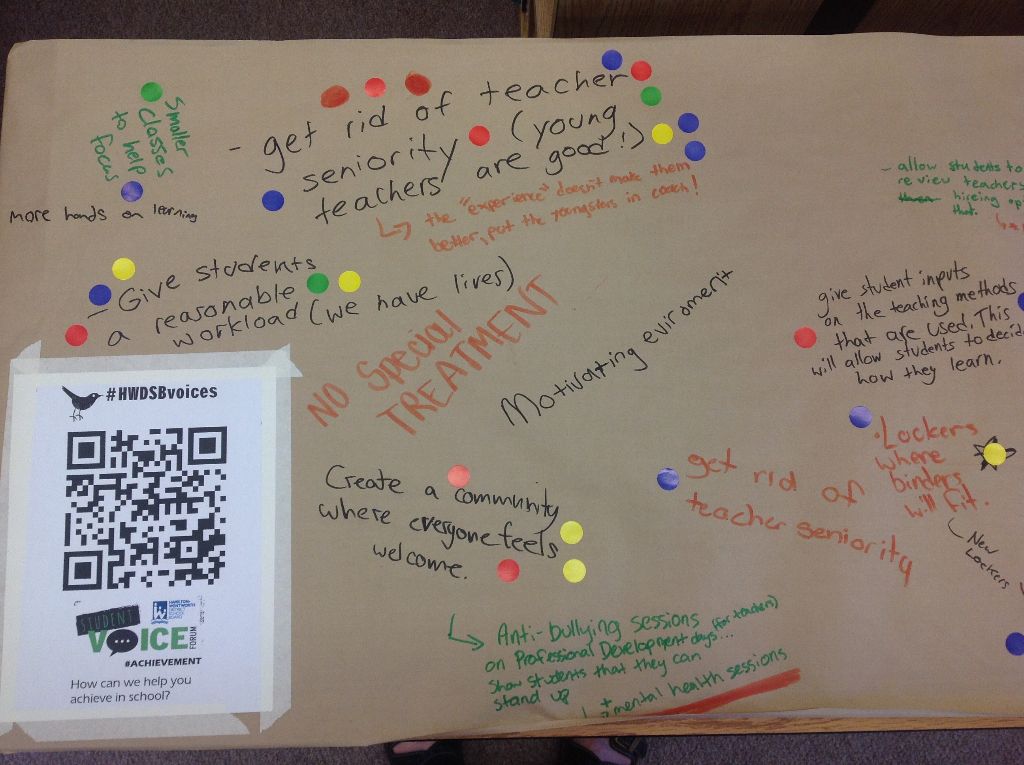 Smaller
Classes
to help
focus
more hands on learning
- get rid of teacher
seniority (young
teachers are good!)
the "experience" doesn't make them
better, put the youngsters in coach!
- Give students
a reasonable
workload (we have lives)
NO Special
TREATMENT
Motivating evironment
- allow students to
review teachers
hireing op
that.
give student inputs
on the teaching methods
that are used. This
will allow students to decid
how they learn.
• Lockers
where
binders
will fit.
New
Lockers
get rid of
teacher seniority
Create a community
where everyone feels
welcome.
Anti-bullying sessions (for teachers)
on Professional Development days...
Show students that they can
stand up
+ mental health sessions
#HWDSBvoices
STUDENT
VOICE
FORUM
HAMILTON-WENTWORTH
DISTRICT
SCHOOL
BOARD
#ACHIEVEMENT
How can we help you
achieve in school?